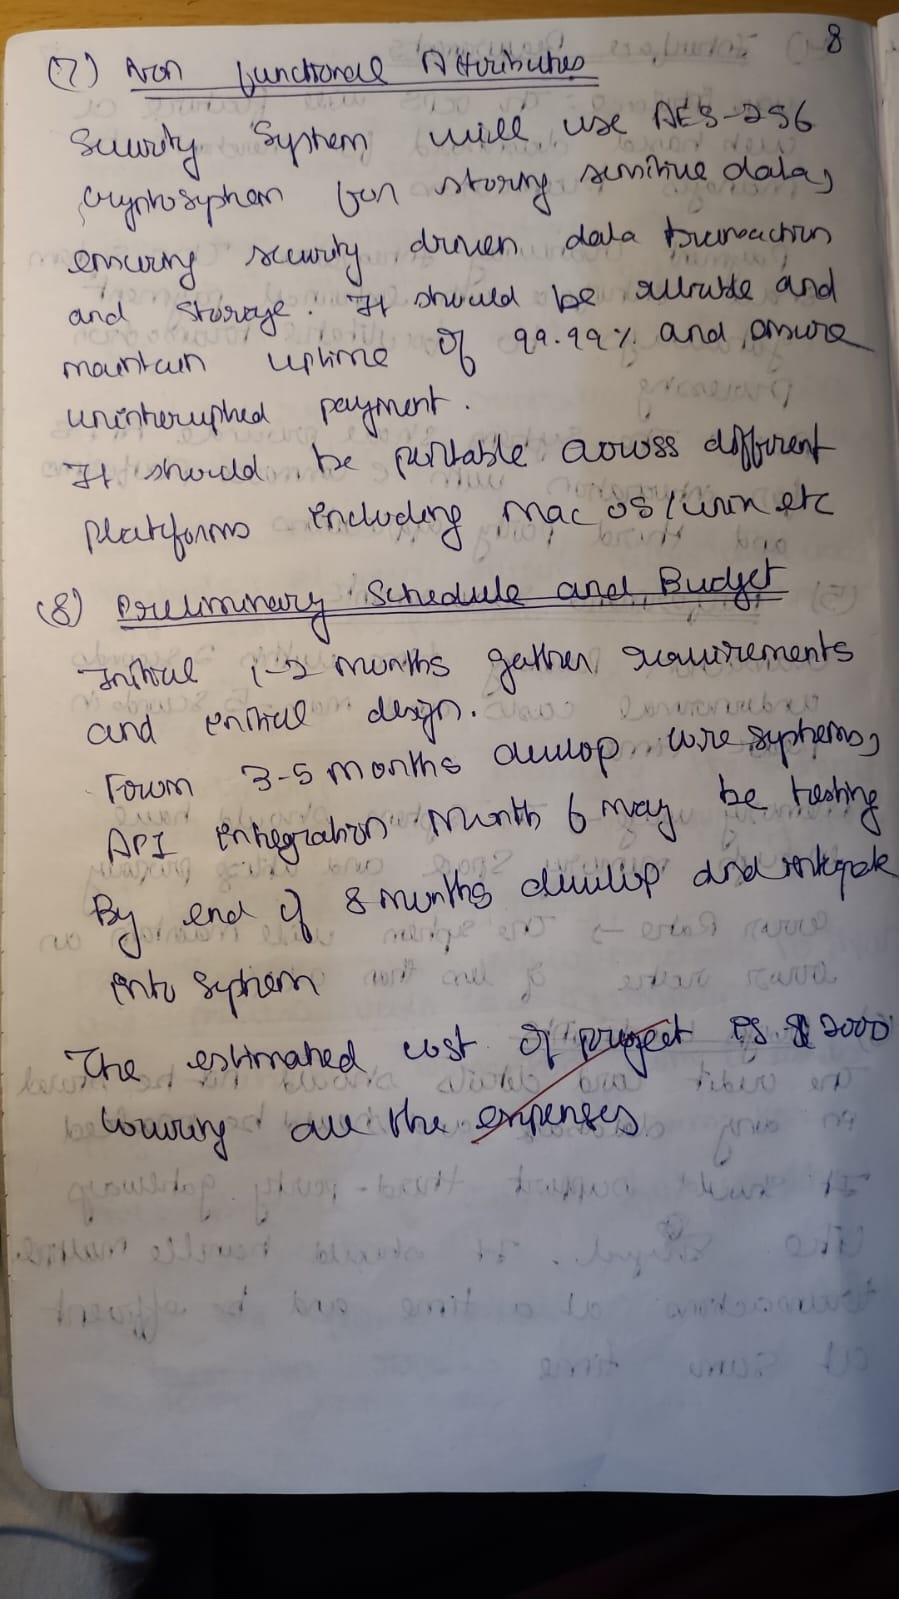 8
(7) Non functional Attributes
Security System will use AES-256
cryptosystem for storing sensitive data,
ensuring security driven data transaction
and storage. It should be reliable and
maintain uptime of 99.99% and assure
uninterrupted payment.
It should be portable across different
platforms including Mac OS/win etc
(8) Preliminary Schedule and Budget
Initial 1-2 months gather requirements
and initial design.
From 3-5 months develop core systems,
API integration Month 6 may be testing
By end of 8 months develop and integrate
into system
The estimated cost of project is $ 2000
covering all the expenses